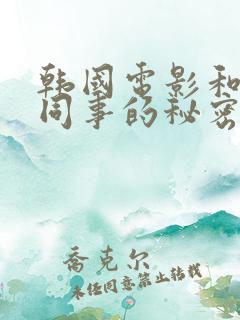 韩国电影和
同事的秘密
乔克尔
未经同意禁止转载